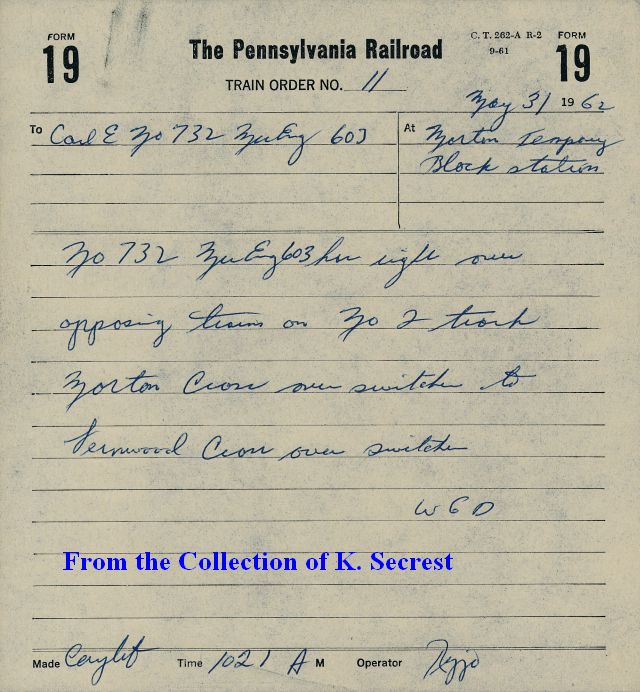 FORM 19
The Pennsylvania Railroad
C. T. 262-A R-2
9-61
FORM 19
TRAIN ORDER NO. 11
May 31 1962
To C and E No 732 Mu Eng 603
At Morton Temporary
Block station
No 732 Mu Eng 603 has right over
opposing trains on No 2 track
Morton Cross over switches to
Fernwood Cross over switches
W G D
From the Collection of K. Secrest
Made Time 1021 A M Operator